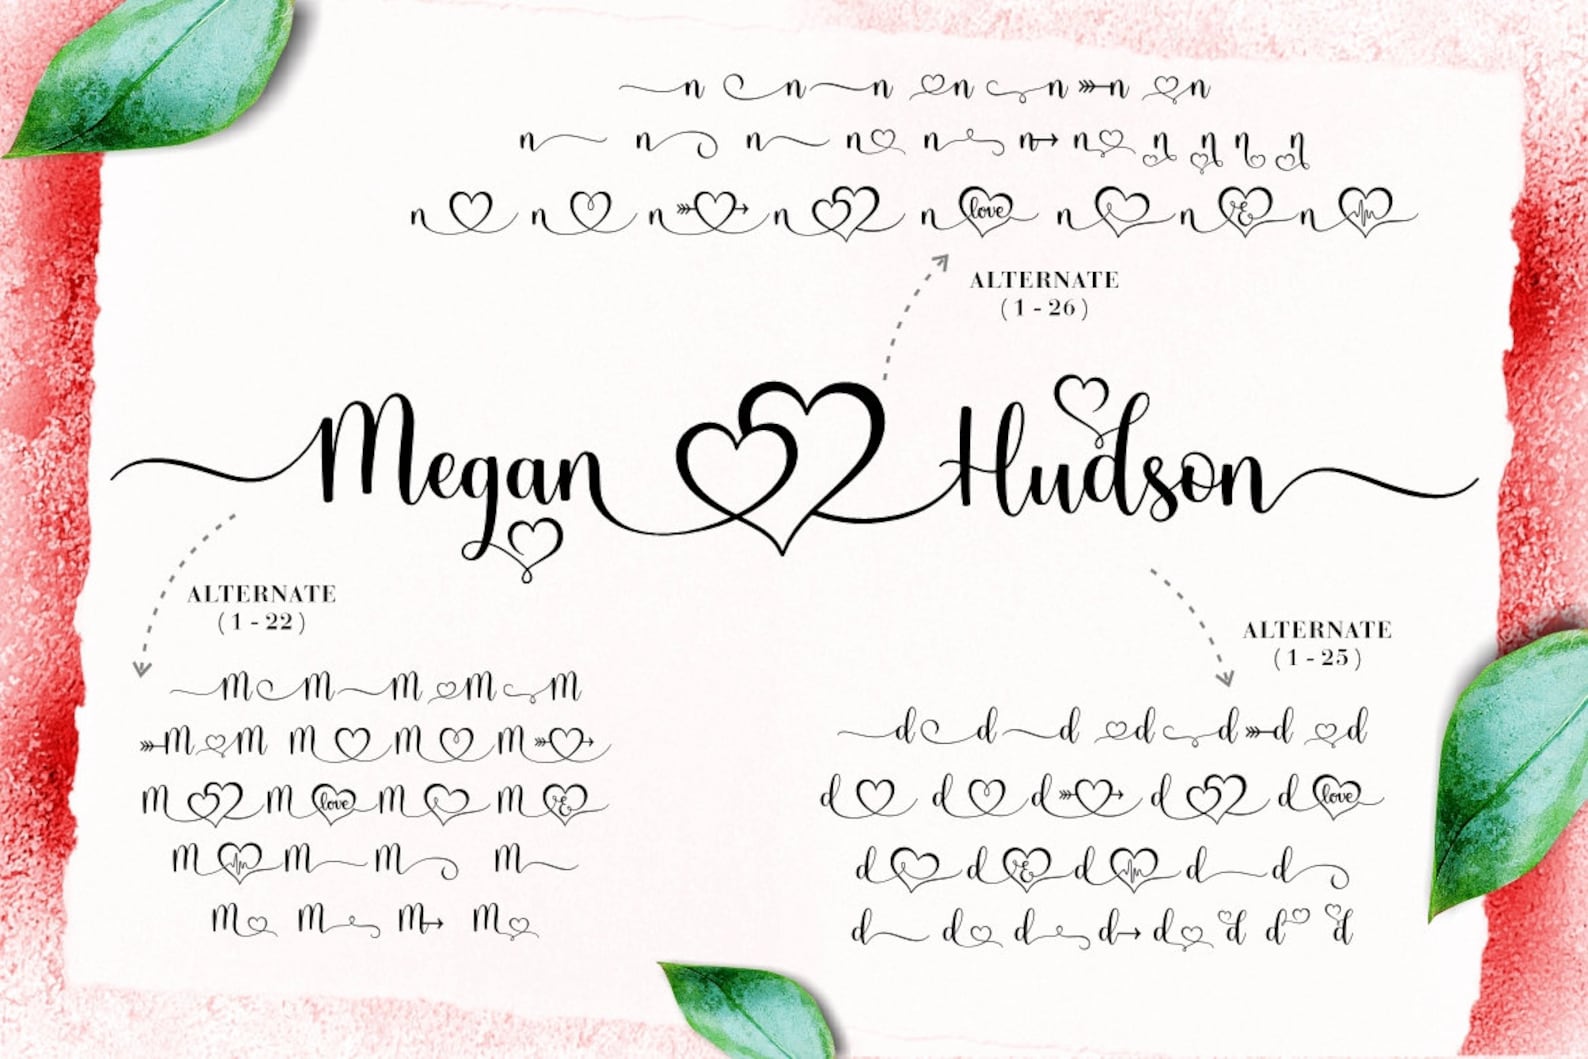 n n n n n n n
n n n n n n n n n n n
n n n n n love n n n
ALTERNATE
(1-26)
Megan Hudson
ALTERNATE
(1-22)
ALTERNATE
(1-25)
m m m m m
m m m m m
m m love m m &
m m m m
m m m m
d d d d d d d
d d d d d love
d d & d d d
d d d d d d d d